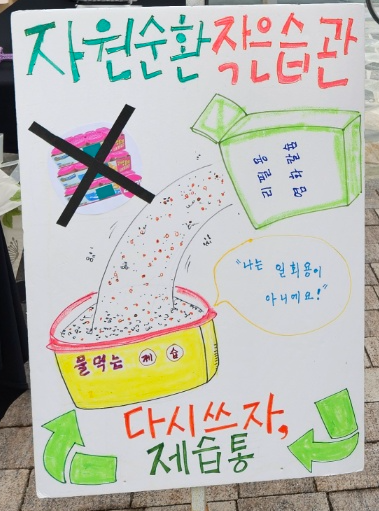 자원순환 작은습관
"나는 일회용이
아니에요!"
물먹는 제습
다시쓰자,
제습통